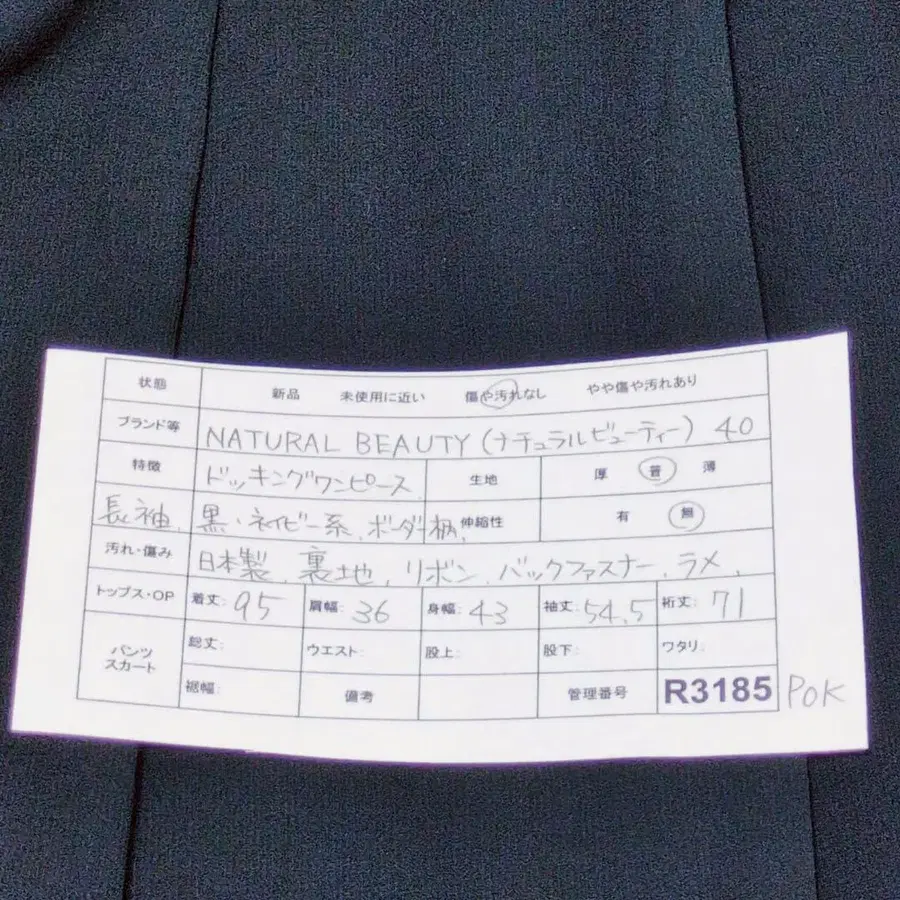 状態 新品 未使用に近い 傷や汚れなし やや傷や汚れあり
ブランド等 NATURAL BEAUTY (ナチュラルビューティー) 40
特徴 ドッキングワンピース 生地 厚 普 薄
長袖、黒・ネイビー系、ボーダー柄、伸縮性 有 無
汚れ・傷み 日本製、裏地、リボン、バックファスナー、ラメ、
トップス・OP 着丈: 95 肩幅: 36 身幅: 43 袖丈: 54.5 裄丈: 71
パンツ スカート 総丈: ウエスト: 股上: 股下: ワタリ:
裾幅: 備考 管理番号 R3185 POK